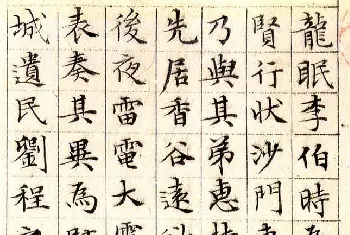 龍眠李伯時
賢行狀沙門
乃與其弟惠
先居香谷遠
後夜雷電大
表奏其異為
城遺民劉程